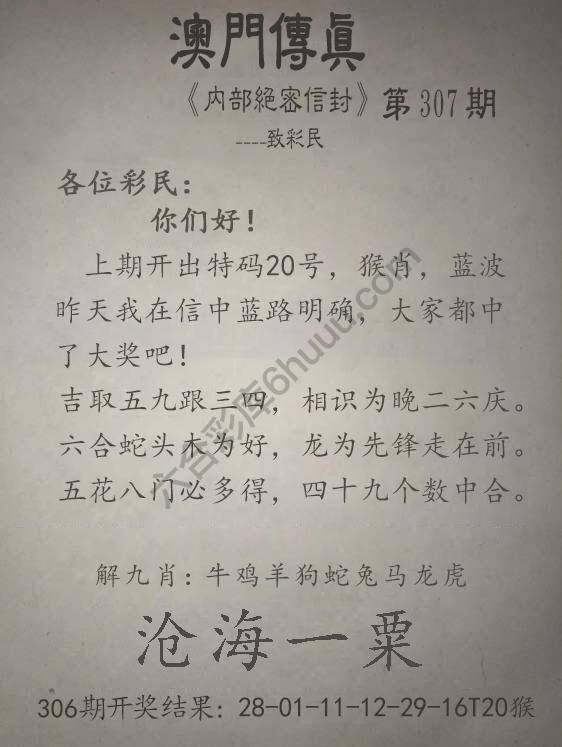 澳門傳真
《内部絕密信封》第307期
----致彩民
各位彩民：
你们好！
上期开出特码20号，猴肖，蓝波
昨天我在信中蓝路明确，大家都中
了大奖吧！
吉取五九跟三四，相识为晚二六庆。
六合蛇头木为好，龙为先锋走在前。
五花八门必多得，四十九个数中合。
解九肖：牛鸡羊狗蛇兔马龙虎
沧海一粟
306期开奖结果：28-01-11-12-29-16T20猴
六合彩库6huuu.com